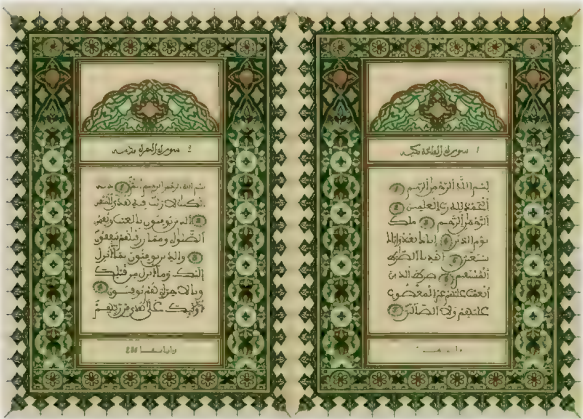 سورة الفاتحة مكية
بسم الله الرحمن الرحيم
الحمد لله رب العلمين
الرحمن الرحيم ملك
يوم الدين إياك نعبد وإياك
نستعين اهدنا الصرط
المستقيم صرط الذين
أنعمت عليهم غير المغضوب
عليهم ولا الضالين
سورة البقرة مدنية
بسم الله الرحمن الرحيم ألم
ذلك الكتب لا ريب فيه هدى للمتقين
الذين يومنون بالغيب ويقيمون
الصلوة ومما رزقنهم ينفقون
والذين يومنون بما أنزل
إليك وما أنزل من قبلك
وبالاخرة هم يوقنون
أولئك على هدى من ربهم